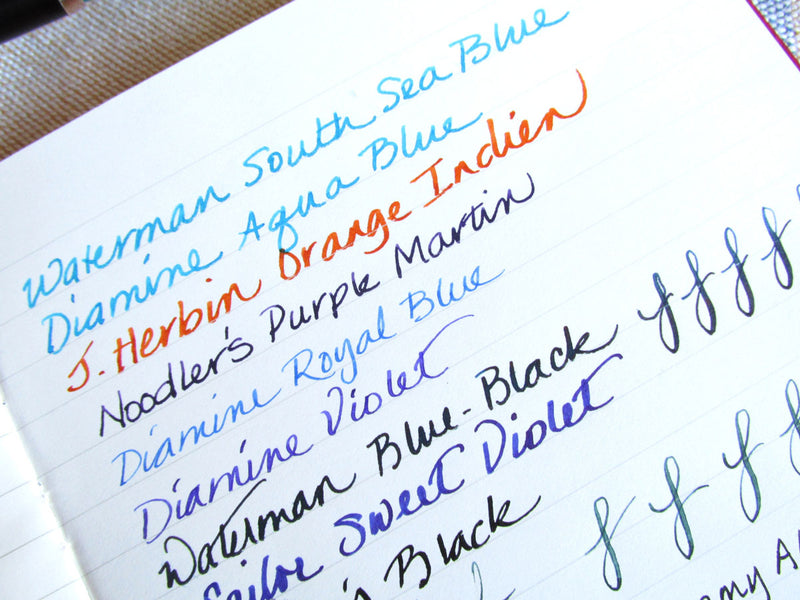 Waterman South Sea Blue
Diamine Aqua Blue
J. Herbin Orange Indien
Noodler's Purple Martin
Diamine Royal Blue
Diamine Violet
Waterman Blue-Black
f f f f
Sailor Sweet Violet
Black
f f f f